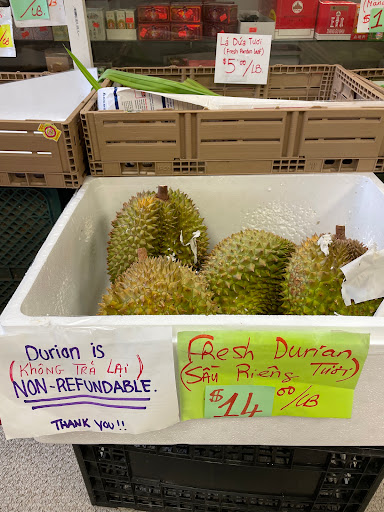 Lá Dứa Tươi
(Fresh Pandan leaf)
$5.00/LB.
Durian is
(Không Trả Lại)
NON-REFUNDABLE.
THANK YOU!!
Fresh Durian
(Sầu Riêng Tươi)
$14.00/LB